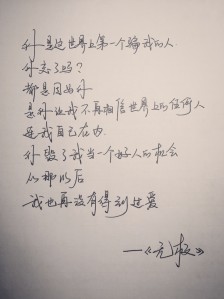 你是这世界上第一个骗我的人
你忘了吗？
都是因为你
是你让我不再相信世界上的任何人
是我自己在内
你毁了我当一个好人的机会
从那以后
我也再没有得到过爱
——《无极》